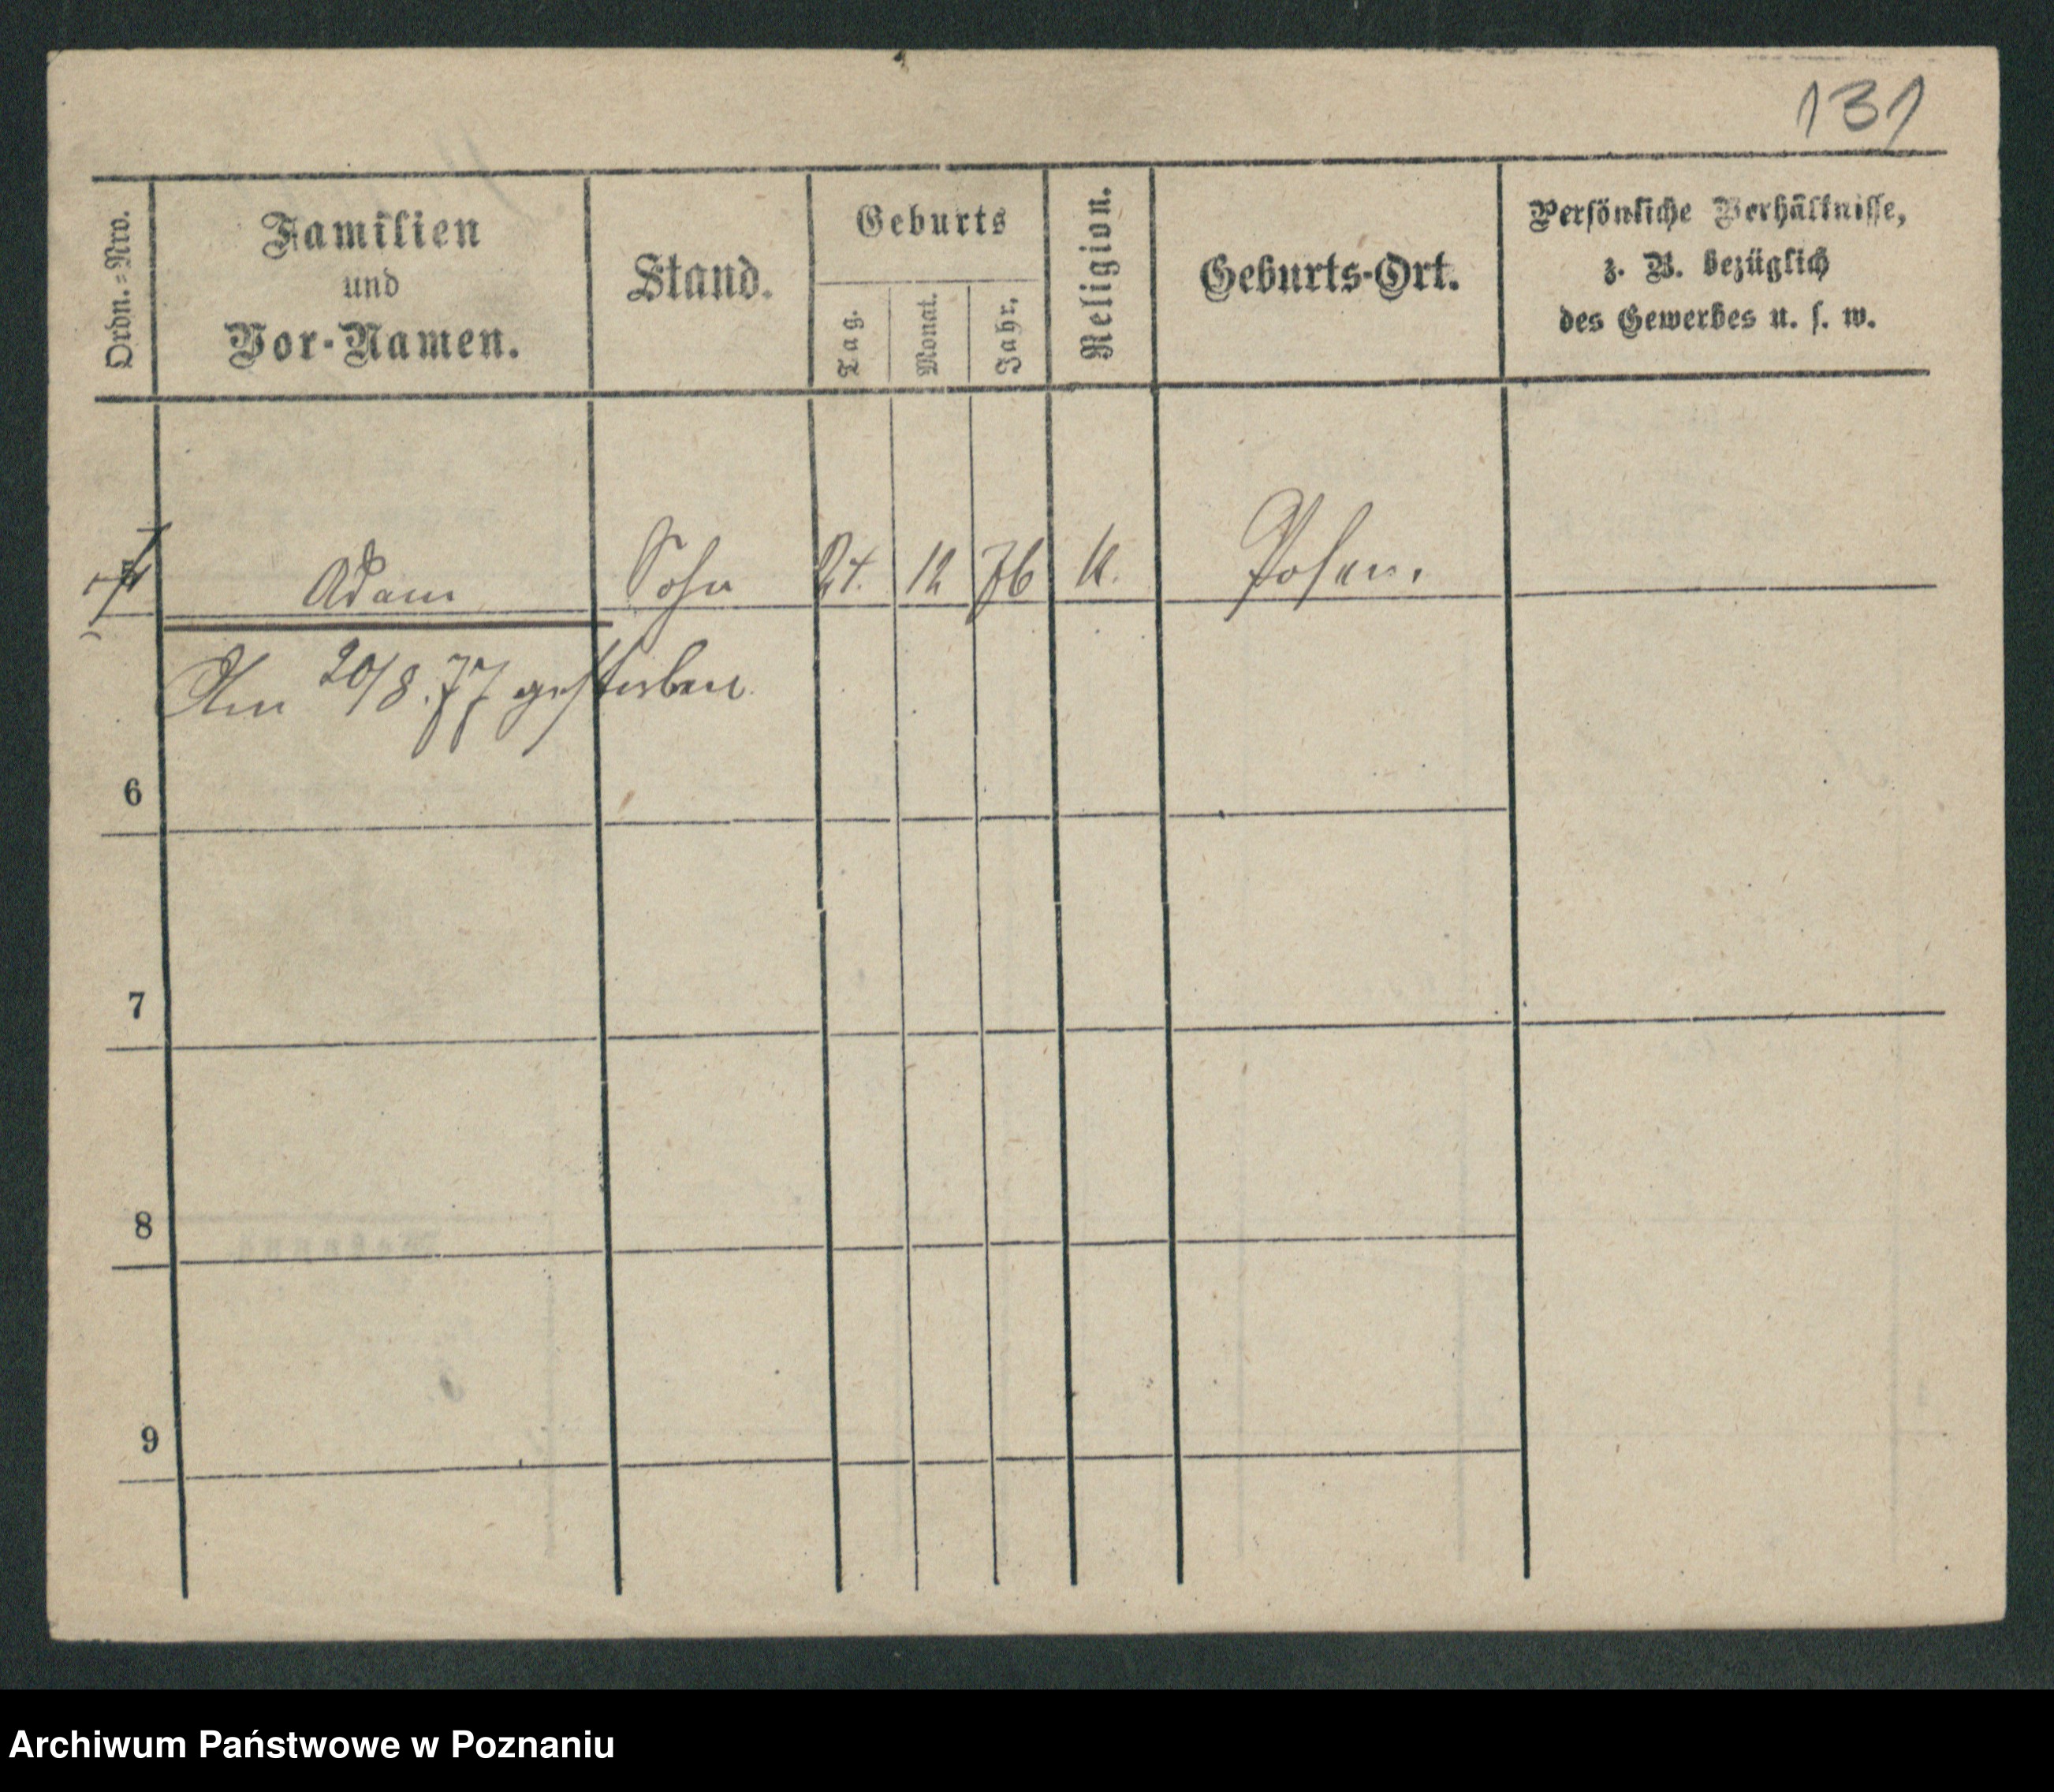 131
Ordn.=Nro.
Familien
und
Vor-Namen.
Stand.
Geburts
Tag.
Monat.
Jahr.
Religion.
Geburts-Ort.
Persönliche Verhältnisse,
z. B. bezüglich
des Gewerbes u. s. w.
Adam Sohn 24. 12 76 k. Posen.
Am 20/8.77 gestorben
6
7
8
9
Archiwum Państwowe w Poznaniu